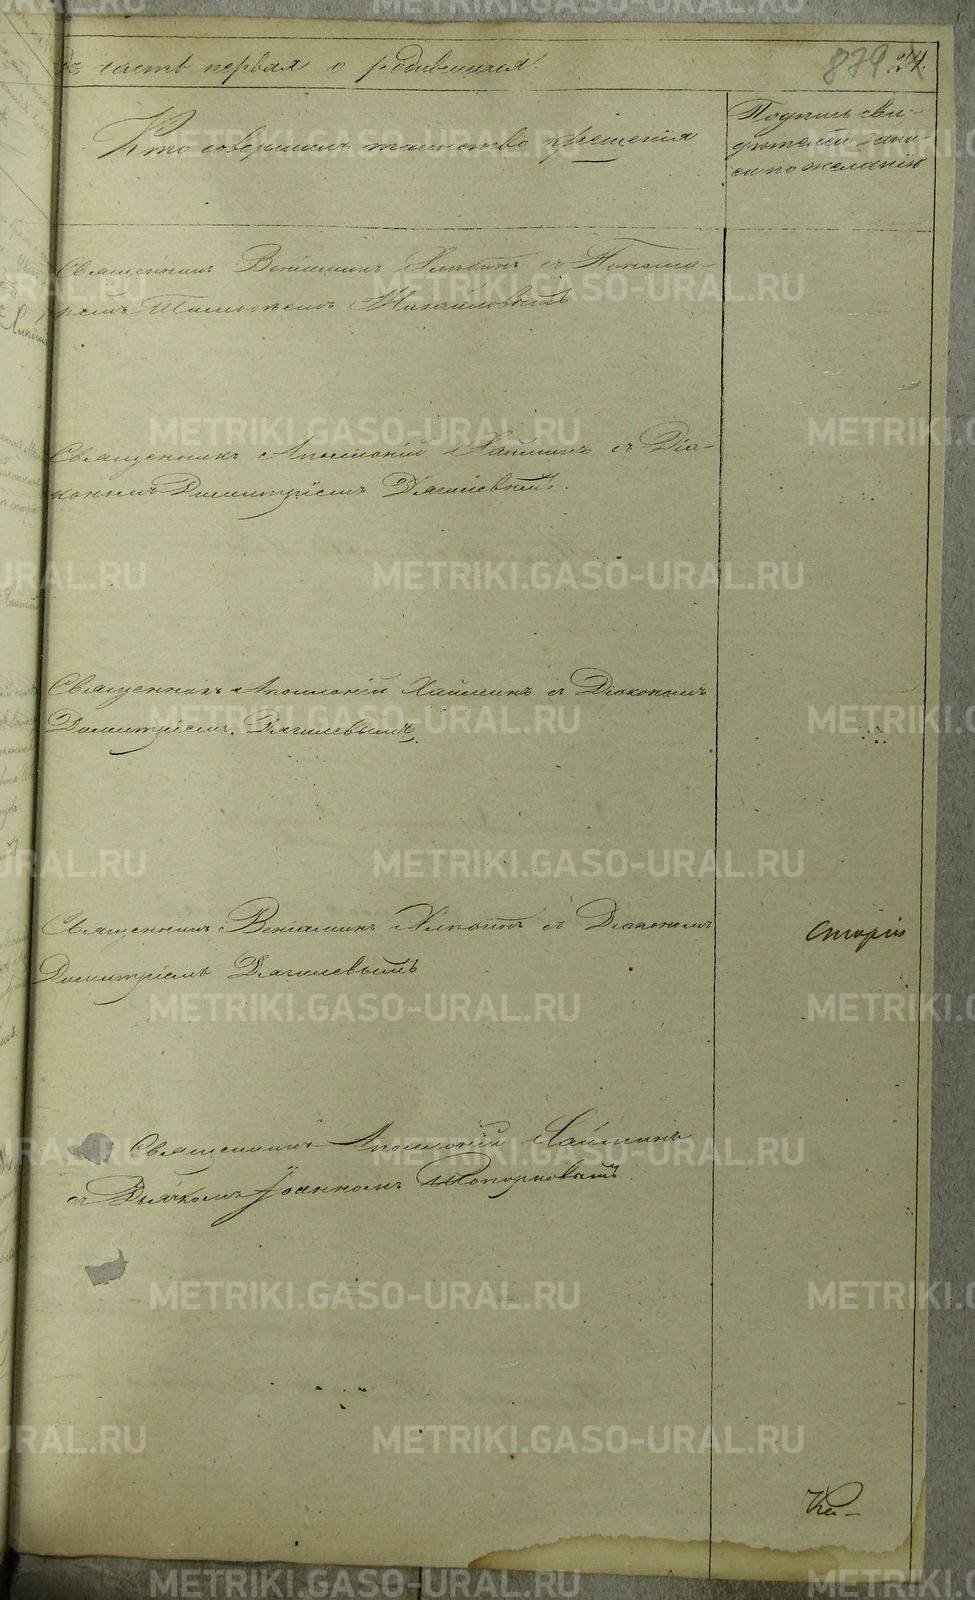 ъ часть первая о родившихся.
879 24.
Кто совершалъ таинство крещенія
Подпись сви-
дѣтелей запи-
си по желанію
Священникъ Веніаминъ Хлѣбинъ съ Понома-
ремъ Михайловымъ
Священникъ Аполлоній Хаминъ съ Діа-
кономъ Димитріемъ Дягилевымъ.
Священникъ Аполлоній Хаминъ съ Діакономъ
Димитріемъ Дягилевымъ.
Священникъ Веніаминъ Хлѣбинъ съ Діакономъ
Димитріемъ Дягилевымъ
Священникъ Аполлоній Хаминъ
съ Дьячкомъ Іоанномъ Топорковымъ.
METRIKI.GASO-URAL.RU